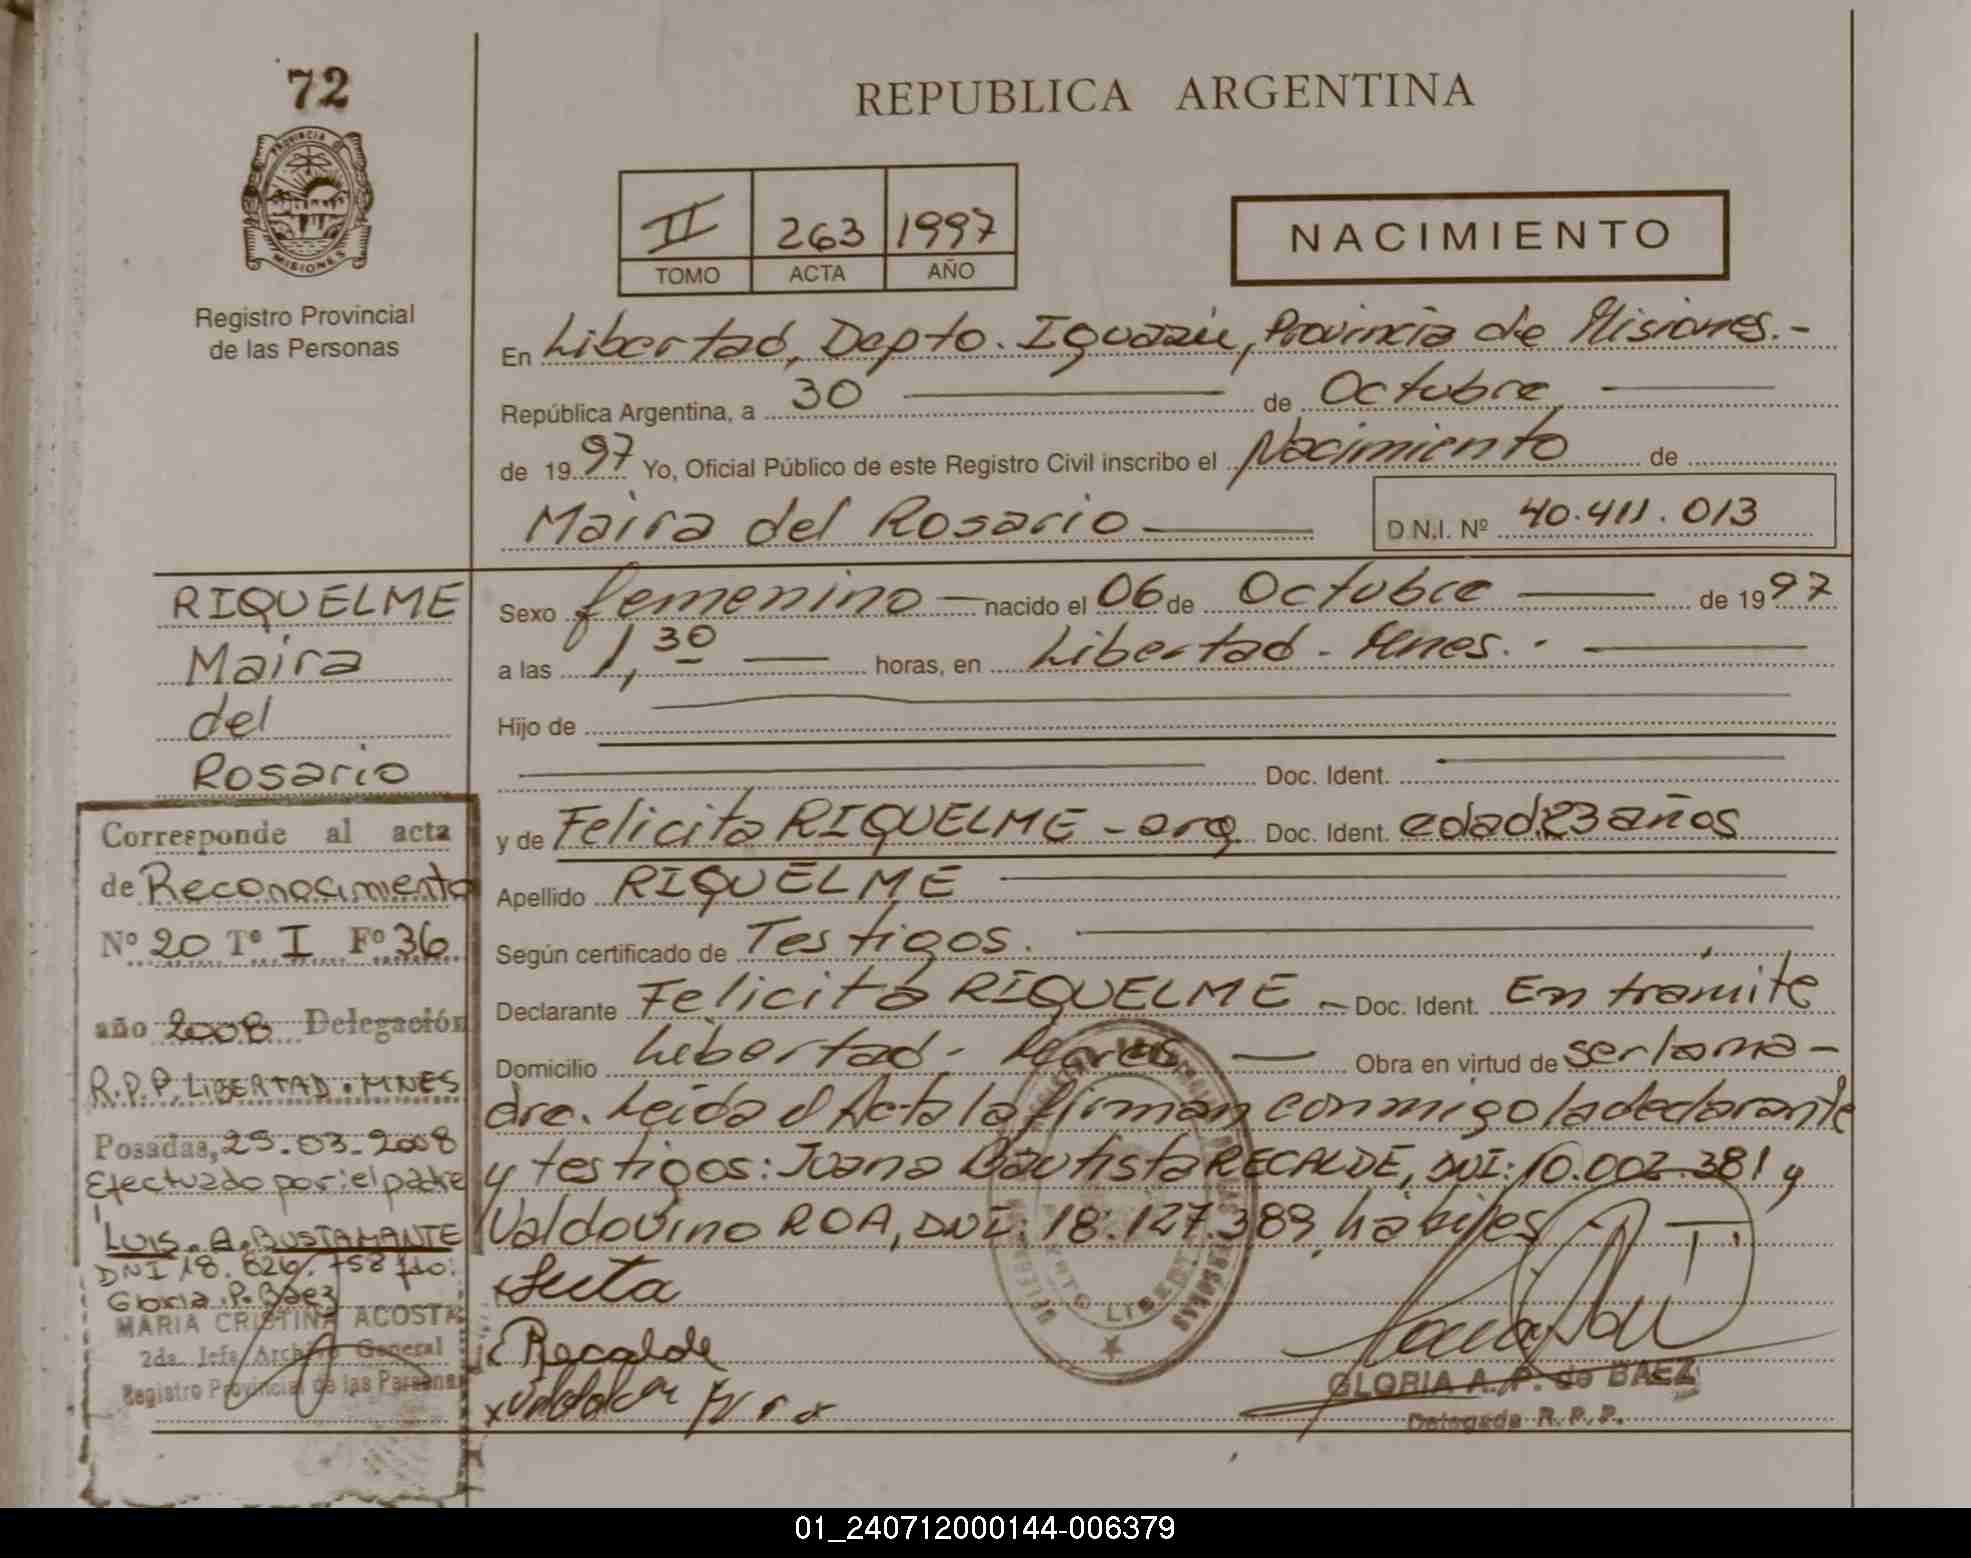 72
PROVINCIA DE
MISIONES
Registro Provincial
de las Personas
REPUBLICA ARGENTINA
II 263 1997
TOMO ACTA AÑO
NACIMIENTO
En Libertad, Depto. Iguazú, Provincia de Misiones.-
República Argentina, a 30 de Octubre
de 1997 Yo, Oficial Público de este Registro Civil inscribo el Nacimiento de
Maira del Rosario D.N.I. Nº 40.411.013
RIQUELME
Maira
del
Rosario
Sexo femenino nacido el 06 de Octubre de 1997
a las 1,30 horas, en Libertad - Mnes.-
Hijo de
Doc. Ident.
y de Felicita RIQUELME - arg. Doc. Ident. edad:23 años
Apellido RIQUELME
Según certificado de Testigos.
Declarante Felicita RIQUELME - Doc. Ident. En trámite
Domicilio Libertad - Obra en virtud de ser la ma-
dre. Leida el Acta la firman conmigo la declarante
y testigos: Juana Bautista RECALDE, DNI: 10.002.381 y
Valdovino ROA, DNI: 18.127.389, habiles
Recalde
GLORIA A. P. de BAEZ
Delegada R.P.P.
Corresponde al acta
de Reconocimiento
Nº 20 Tº I Fº 36
año 2008 Delegación
R.P.P. LIBERTAD. MNES
Posadas, 25.03.2008
Efectuado por: el padre
LUIS. A. BUSTAMANTE
DNI 18.826.758
Gloria. P. Baez
MARIA CRISTINA ACOSTA
2da. Jefa Archivo General
Registro Provincial de las Personas
01_240712000144-006379